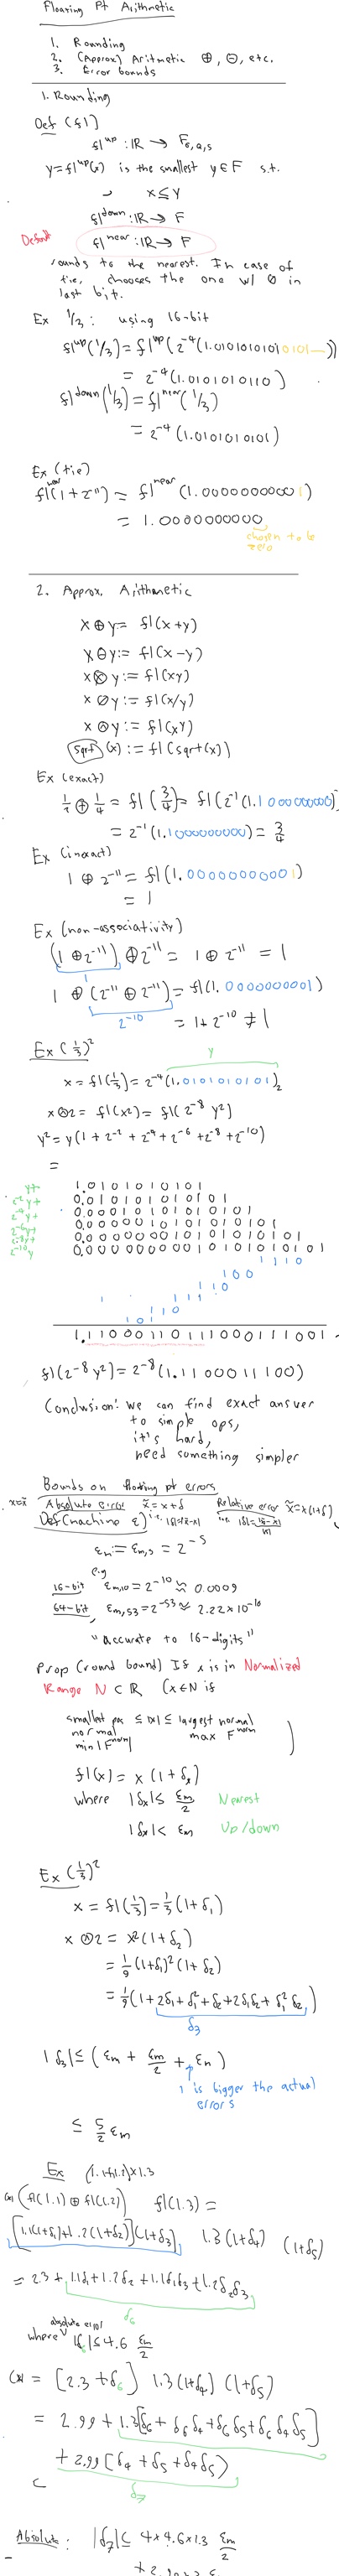 Floating Pt Arithmetic
1. Rounding
2. (Approx) Aritmetic ⊕, ⊖, etc.
3. Error bounds
1. Rounding
Def (fl)
fl^up : ℝ → F_σ,Q,S
y = fl^up(x) is the smallest y ∈ F s.t.
x ≤ y
fl^down : ℝ → F
Default
fl^near : ℝ → F
rounds to the nearest. In case of
tie, chooses the one w/ 0 in
last bit.
Ex 1/3: using 16-bit
fl^up(1/3) = fl^up(2^-4(1.0101010101 0101...))
= 2^-4(1.0101010110)
fl^down(1/3) = fl^near(1/3)
= 2^-4(1.0101010101)
Ex (tie)
fl^near(1+2^-11) = fl^near(1.00000000001)
= 1.0000000000
chosen to be
zero
2. Approx. Arithmetic
x ⊕ y := fl(x+y)
x ⊖ y := fl(x-y)
x ⊗ y := fl(xy)
x ⊘ y := fl(x/y)
x ⊙ y := fl(x^y)
sqrt (x) := fl(sqrt(x))
Ex (exact)
1/2 ⊕ 1/4 = fl(3/4) = fl(2^-1(1.1000000000))
= 2^-1(1.1000000000) = 3/4
Ex (inexact)
1 ⊕ 2^-11 = fl(1.00000000001)
= 1
Ex (non-associativity)
(1 ⊕ 2^-11) ⊕ 2^-11 = 1 ⊕ 2^-11 = 1
1
1 ⊕ (2^-11 ⊕ 2^-11) = fl(1.0000000001)
2^-10
= 1 + 2^-10 ≠ 1
Ex (1/3)^2
y
x = fl(1/3) = 2^-4(1.0101010101)_2
x ⊙ 2 = fl(x^2) = fl(2^-8 y^2)
y^2 = y(1 + 2^-2 + 2^-4 + 2^-6 + 2^-8 + 2^-10)
=
y+ 1.0101010101
2^-2 y+ 0.010101010101
2^-4 y+ 0.00010101010101
2^-6 y+ 0.0000010101010101
2^-8 y+ 0.000000010101010101
2^-10 y 0.00000000010101010101
1.11000110111000111001
fl(2^-8 y^2) = 2^-8(1.1100011100)
Conclusion: we can find exact answer
to simple ops,
it's hard,
need something simpler
Bounds on floating pt errors
x≈x̃ Absolute error x̃ = x+δ i.e. |δ|=|x̃-x| Relative error x̃ = x(1+δ) i.e. |δ| = |x̃-x|/|x|
Def (machine ε)
ε_m := ε_m,s = 2^-S
e.g
16-bit ε_m,10 = 2^-10 ≈ 0.0009
64-bit, ε_m,53 = 2^-53 ≈ 2.22×10^-16
"accurate to 16-digits"
Prop (round bound) If x is in Normalized
Range N ⊂ ℝ (x ∈ N if
smallest pos normal ≤ |x| ≤ largest normal
min |F^norm| max F^norm )
fl(x) = x(1+δ_x)
where |δ_x| ≤ ε_m/2 Nearest
|δ_x| < ε_m Up/down
Ex (1/3)^2
x = fl(1/3) = 1/3 (1+δ_1)
x ⊙ 2 = x^2(1+δ_2)
= 1/9 (1+δ_1)^2 (1+δ_2)
= 1/9 (1+2δ_1+δ_1^2+δ_2+2δ_1δ_2+δ_1^2 δ_2)
δ_3
|δ_3| ≤ (ε_m + ε_m/2 + ε_m)
1 is bigger the actual
errors
≤ 5/2 ε_m
Ex (1.1+1.2)×1.3
(*) (fl(1.1) ⊕ fl(1.2)) fl(1.3) =
[1.1(1+δ_1)+1.2(1+δ_2)](1+δ_3) 1.3(1+δ_4) (1+δ_5)
= 2.3 + 1.1δ_1 + 1.2δ_2 + 1.1δ_1δ_3 + 1.2δ_2δ_3
δ_6
absolute error
where |δ_6| ≤ 4.6 ε_m/2
(*) = [2.3 + δ_6] 1.3(1+δ_4)(1+δ_5)
= 2.99 + 1.3[δ_6 + δ_6δ_4 + δ_6δ_5 + δ_6δ_4δ_5]
+ 2.99(δ_4 + δ_5 + δ_4δ_5)
δ_7
Absolute: |δ_7| ≤ 4×4.6×1.3 ε_m/2